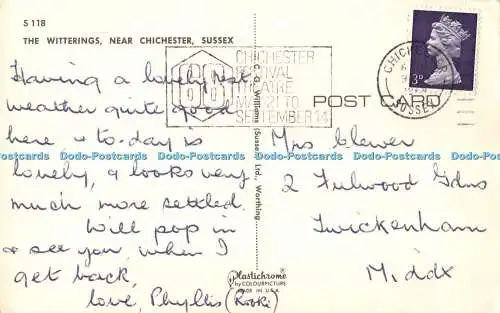 S 118
THE WITTERINGS, NEAR CHICHESTER, SUSSEX
CHICHESTER
FESTIVAL
THEATRE
MAY 21 TO
SEPTEMBER 14
CHICHESTER
SUSSEX
3D
POST CARD
Having a lovely rest,
weather quite good
here & to-day is
lovely, & looks very
much more settled.
Will pop in
& see you, when I
get back,
love, Phyllis (Rooke)
Mrs Clewer
2 Fulwood Gdns
Twickenham
Middx
C. G. Williams (Sussex) Ltd., Worthing
Plastichrome ®
by COLOURPICTURE
MADE IN U.S.A.
Dodo-Postcards Dodo-Postcards Dodo-Postcards Dodo-Postcards Dodo-Postcards